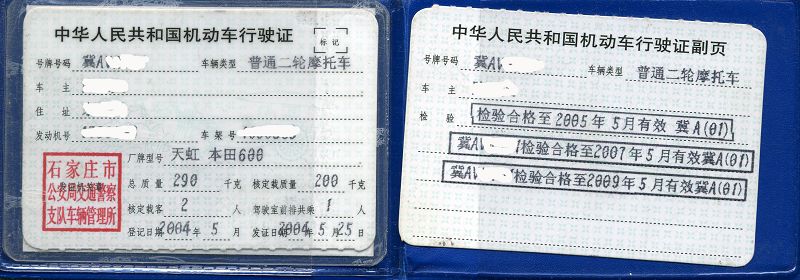 中华人民共和国机动车行驶证
标记
号牌号码 冀A 车辆类型 普通二轮摩托车
车主
住址
发动机号 车架号
厂牌型号 天虹 本田600
总质量 290 千克 核定载质量 200 千克
核定载客 2 人 驾驶室前排共乘 1 人
登记日期 2004年5月 发证日期 2004年5月25日
石家庄市
公安局交通警察
支队车辆管理所
中华人民共和国机动车行驶证副页
号牌号码 冀AV 车辆类型 普通二轮摩托车
车主
检验 检验合格至2005年5月有效 冀A(01)
冀AV 检验合格至2007年5月有效冀A(01)
冀AV 检验合格至2009年5月有效冀A(01)